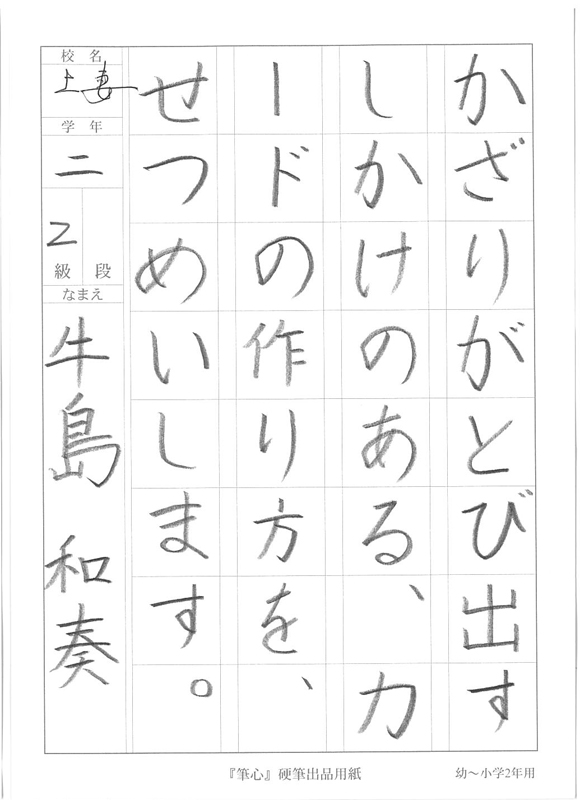 かざりがとび出す
しかけのある、カ
ードの作り方を、
せつめいします。
校名
上妻
学年
二
2
級 段
なまえ
牛島 和奏
『筆心』硬筆出品用紙
幼〜小学2年用